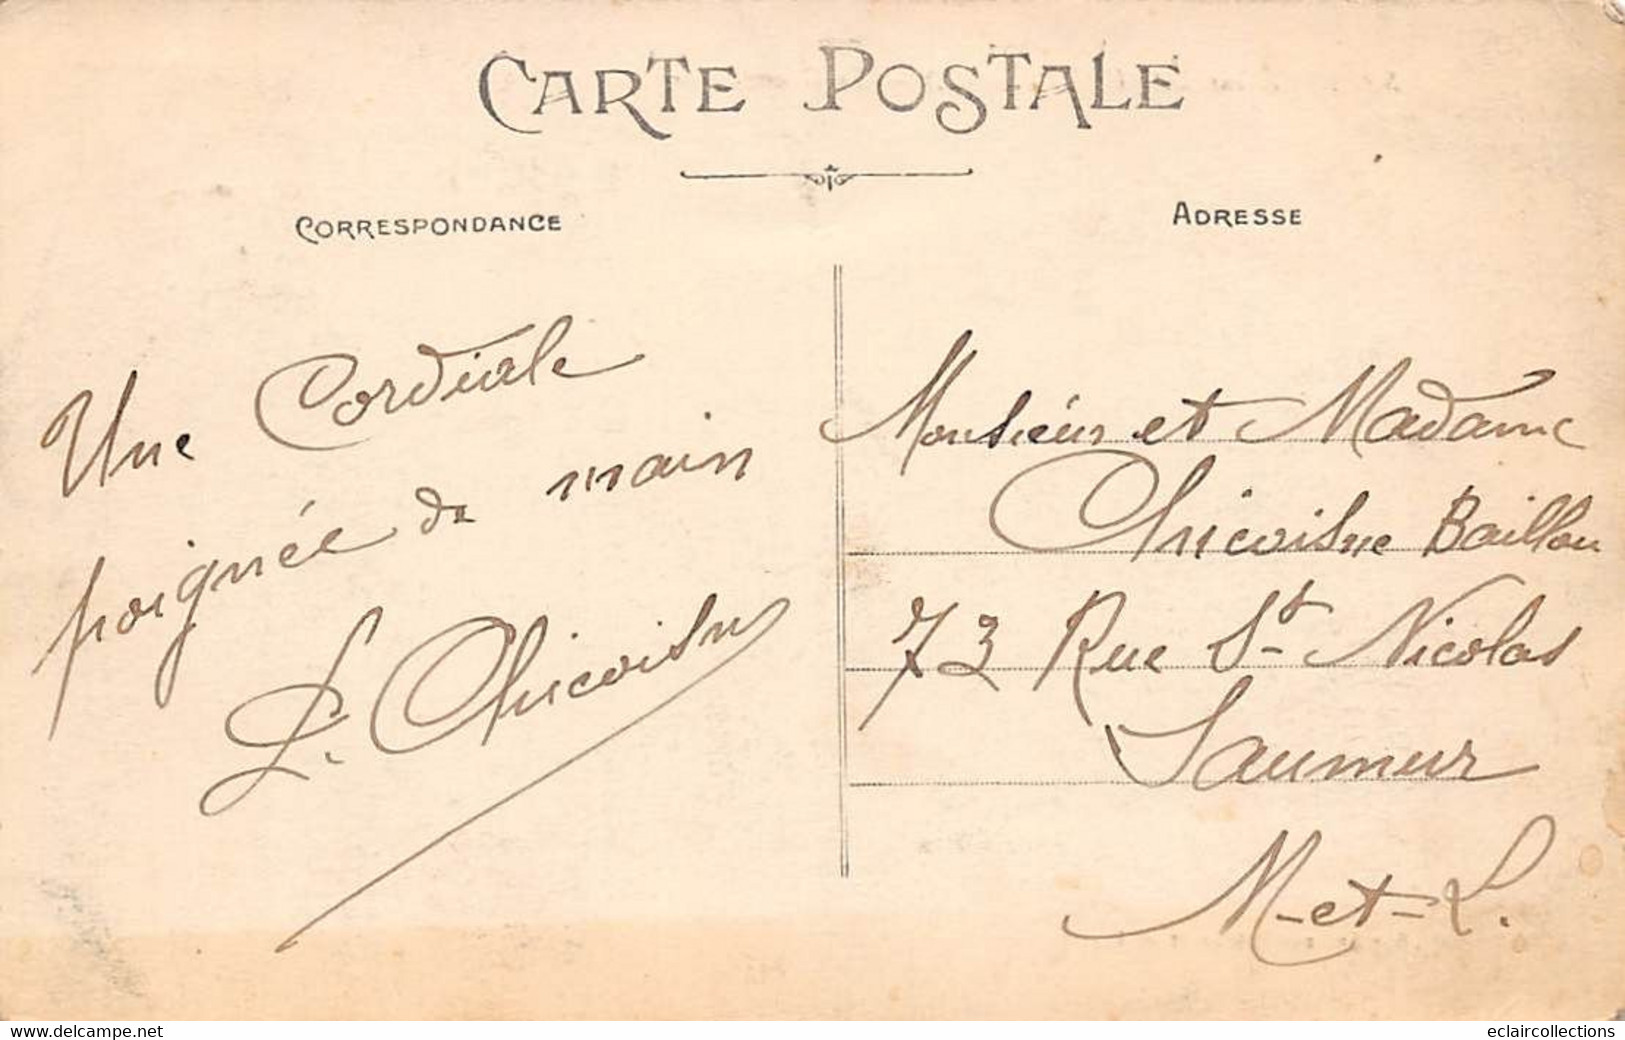 CARTE POSTALE
CORRESPONDANCE
ADRESSE
Une Cordiale
poignée de main
L. Chicoisne
Monsieur et Madame
Chicoisne Baillou
73 Rue St Nicolas
Saumur
M-et-L.
www.delcampe.net
eclaircollections